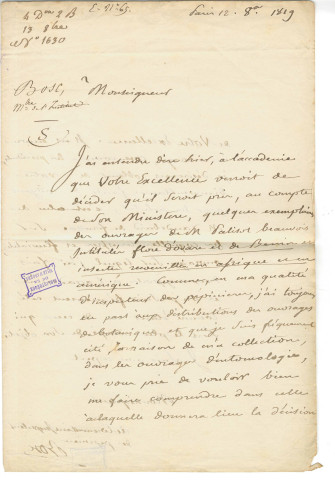 4 Don 2 B
13 8bre
N° 1630
E. 21. 65.
Paris 12. 8bre 1819
Bosc,
Monseigneur
J'ai entendu dire hier, à l'académie
que Votre Excellence venoit de
décider qu'il seroit pris, au compte
de son Ministère, quelques exemplaires
des ouvrages de M. Palisot Beauvois
intitulés flore d'oware et de Benin
insectes recueillis en afrique et en
amérique. Comme, en ma qualité
d'inspecteur des pepinieres, j'ai toujours
eu part aux distributions des ouvrages
de botanique, et que je suis fréquemment
cité, à raison de ma collection,
dans les ouvrages d'entomologie,
je vous prie de vouloir bien
me faire comprendre dans celle
à laquelle donnera lieu la décision